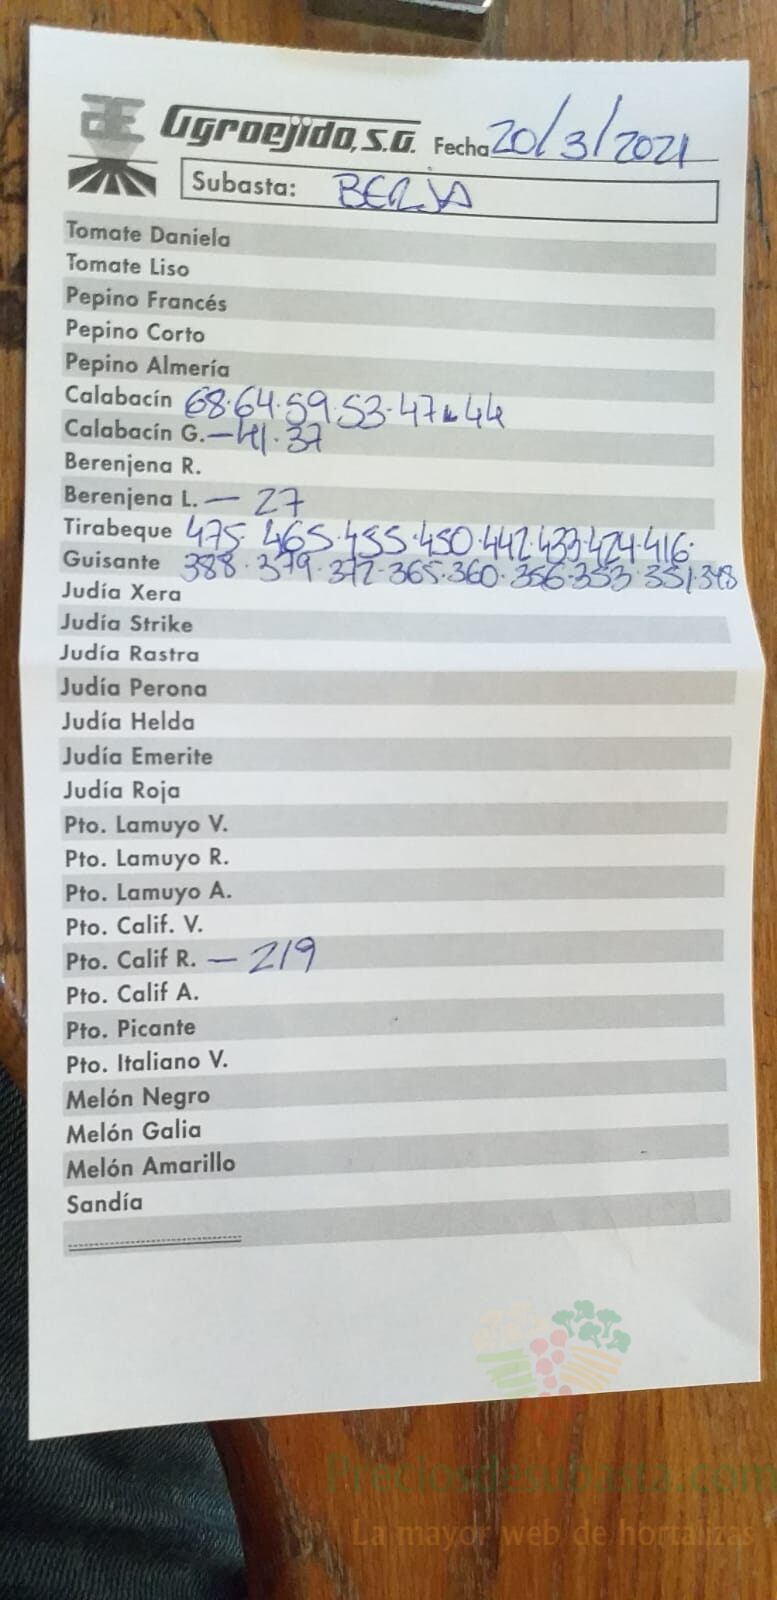 AE Agroejido, S.A. Fecha 20/3/2021
Subasta: BERJA
Tomate Daniela
Tomate Liso
Pepino Francés
Pepino Corto
Pepino Almería
Calabacín 68.64.59.53.47.44
Calabacín G. — 41.37
Berenjena R.
Berenjena L. — 27
Tirabeque 475.465.455.450.442.433.424.416.
Guisante 388.379.372.365.360.356.353.351.348
Judía Xera
Judía Strike
Judía Rastra
Judía Perona
Judía Helda
Judía Emerite
Judía Roja
Pto. Lamuyo V.
Pto. Lamuyo R.
Pto. Lamuyo A.
Pto. Calif. V.
Pto. Calif R. — 219
Pto. Calif A.
Pto. Picante
Pto. Italiano V.
Melón Negro
Melón Galia
Melón Amarillo
Sandía
Preciosdesubasta.com
La mayor web de hortalizas